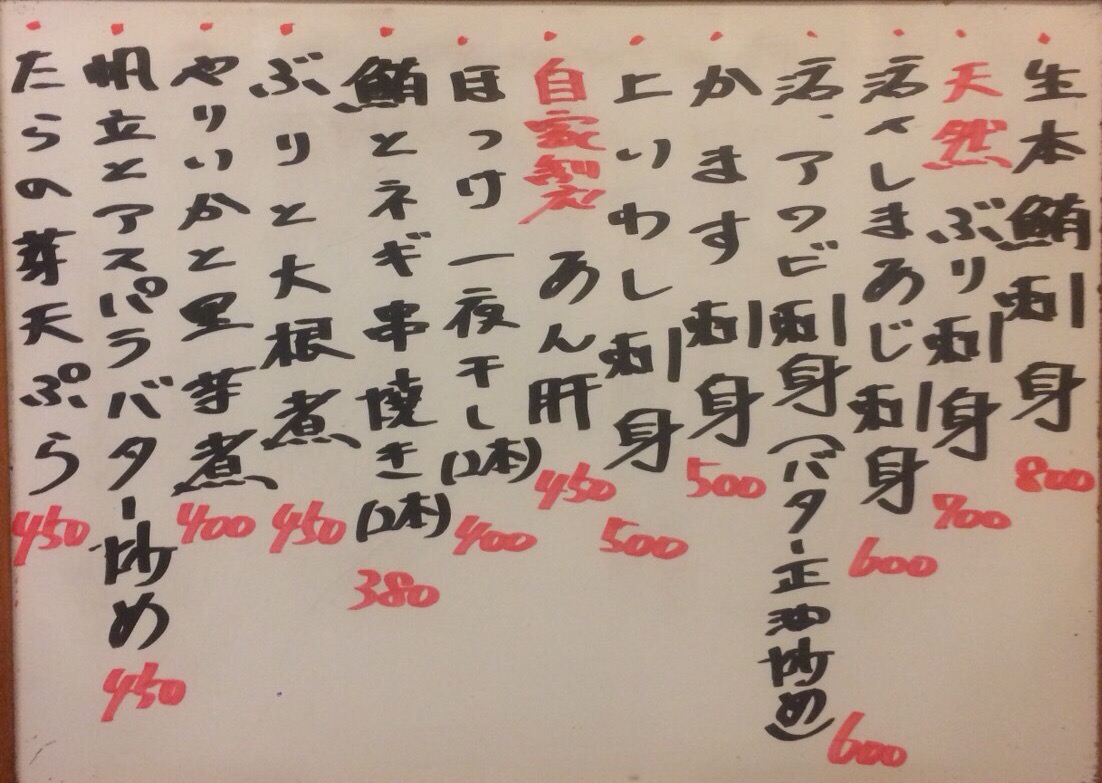 生本鮪刺身 800
天然 ぶり刺身 700
活〆しまあじ刺身 600
活、アワビ刺身(バター正油炒め) 600
かます刺身 500
上いわし刺身 500
自家製 あん肝 450
ほっけ一夜干し(2本) 400
鮪とネギ串焼き(2本) 380
ぶりと大根煮 450
やりいかと里芋煮 400
帆立とアスパラバター炒め 450
たらの芽天ぷら 450